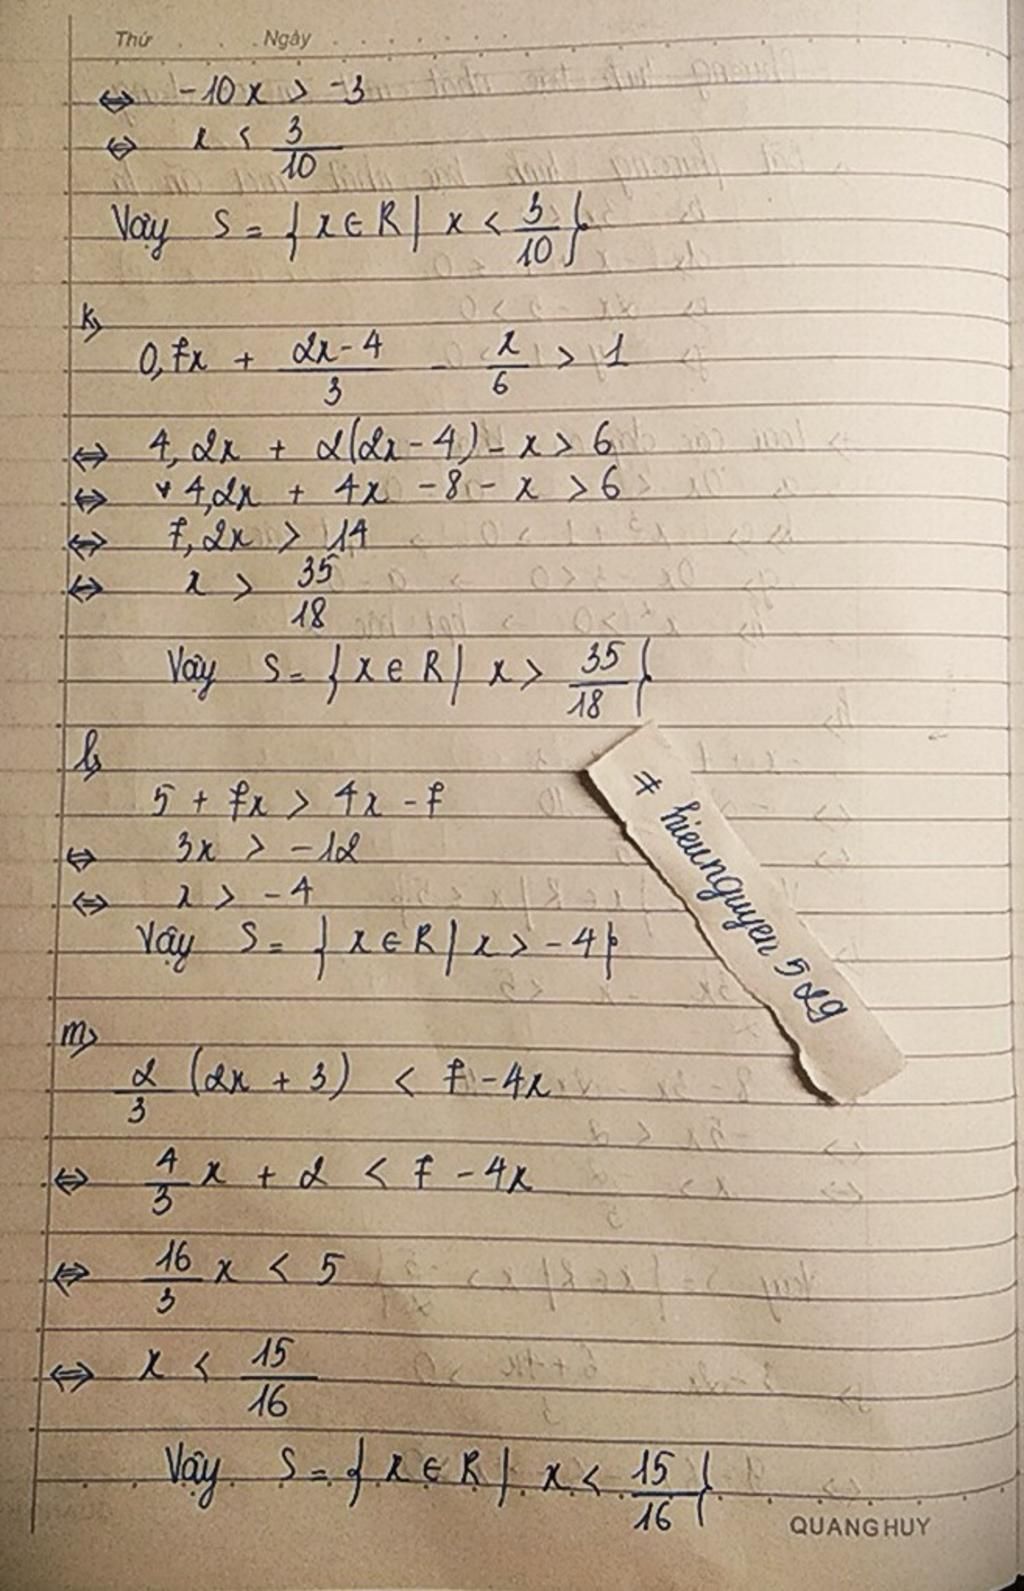 Thứ . . . . Ngày . . . . . . .
⇔ -10x > -3
⇔ x < 3/10
Vậy S = { x ∈ R | x < 3/10 }
k,
0,7x + (2x - 4)/3 - x/6 > 1
⇔ 4,2x + 2(2x - 4) - x > 6
⇔ 4,2x + 4x - 8 - x > 6
⇔ 7,2x > 14
⇔ x > 35/18
Vậy S = { x ∈ R | x > 35/18 }
l,
5 + 7x > 4x - 7
⇔ 3x > -12
⇔ x > -4
Vậy S = { x ∈ R | x > -4 }
+ hieunguyen 529
m,
2/3 (2x + 3) < 7 - 4x
⇔ 4/3 x + 2 < 7 - 4x
⇔ 16/3 x < 5
⇔ x < 15/16
Vậy S = { x ∈ R | x < 15/16 }
QUANG HUY